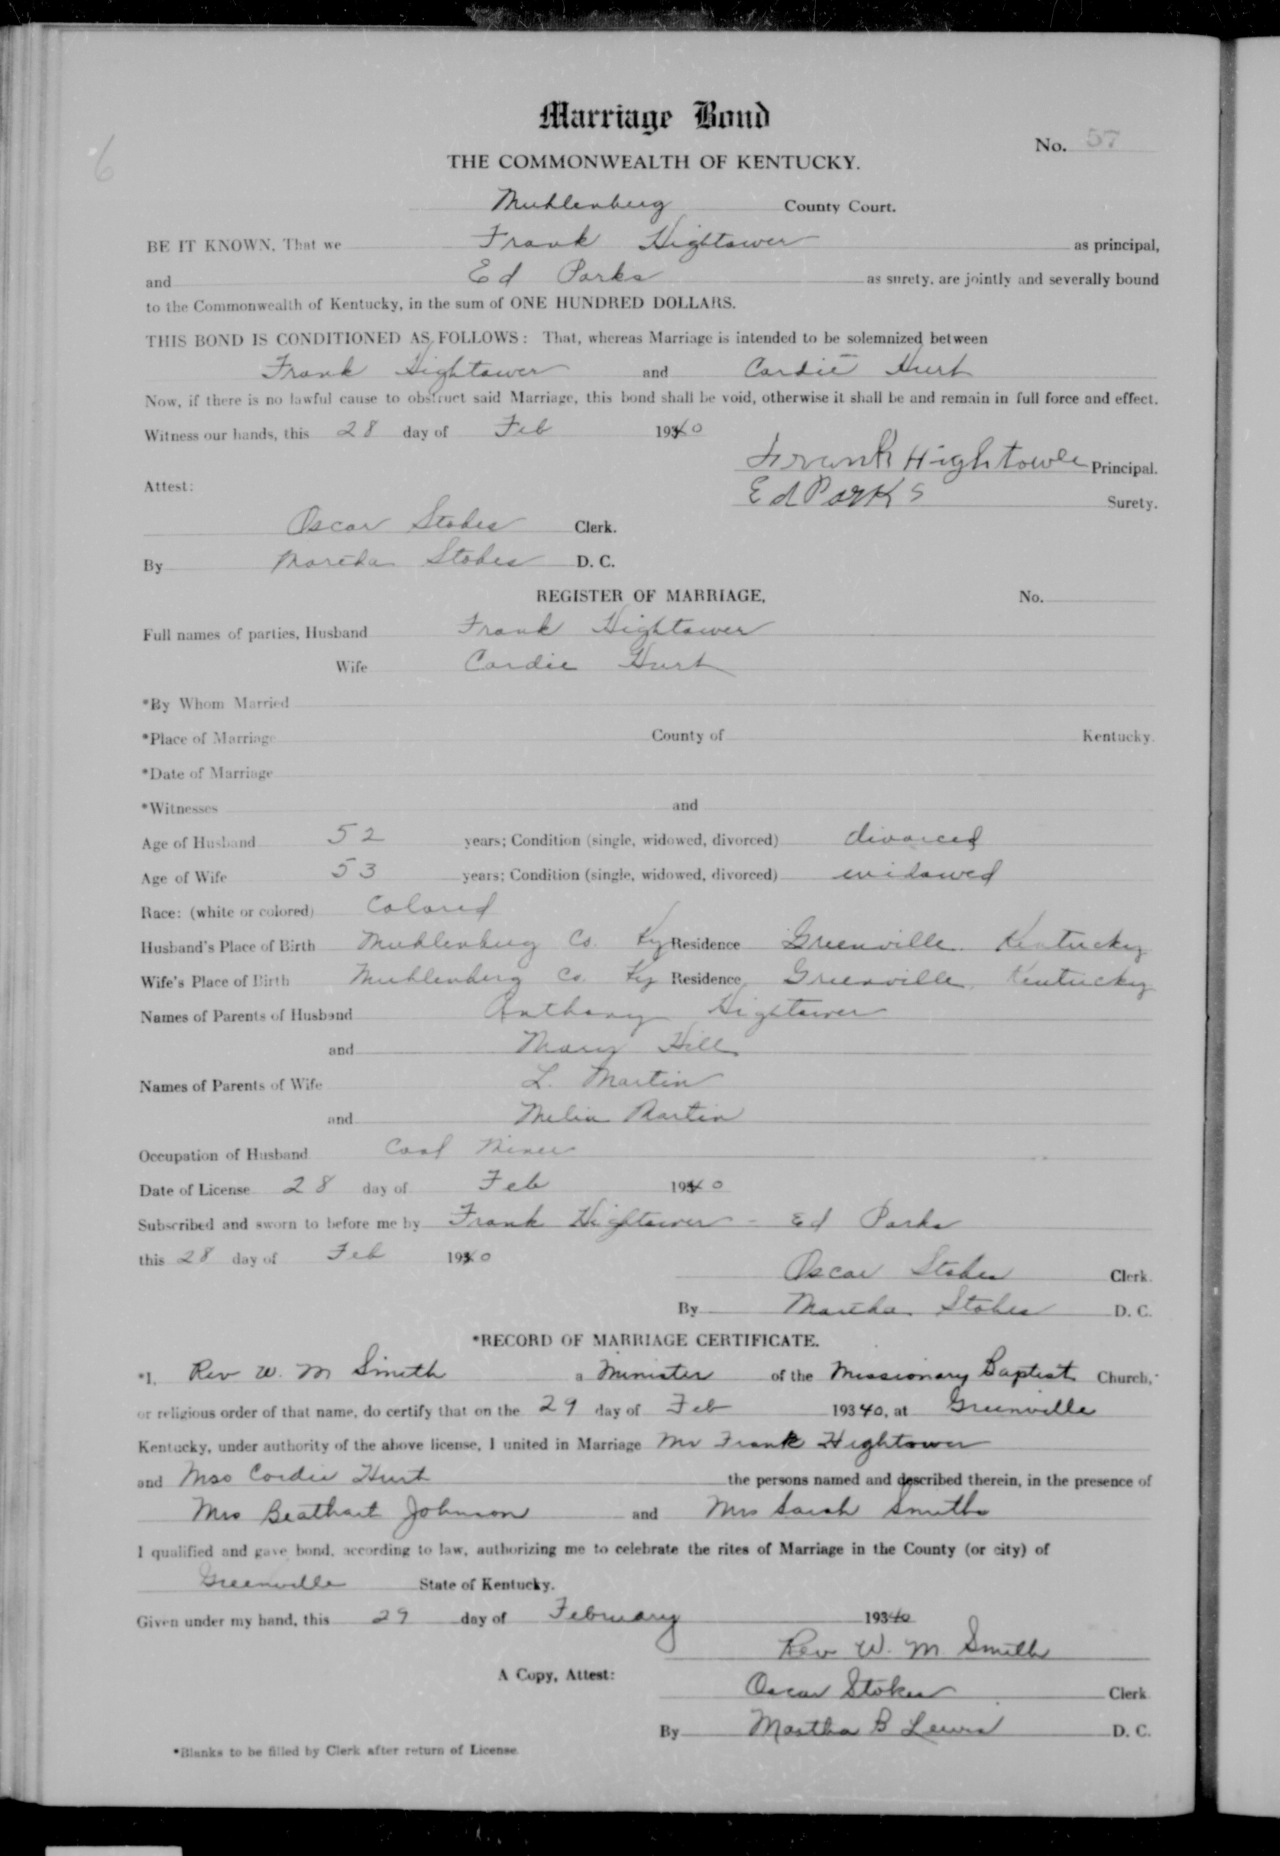 Marriage Bond
No. 57
6
THE COMMONWEALTH OF KENTUCKY.
Muhlenberg County Court.
BE IT KNOWN, That we Frank Hightower as principal,
and Ed Parks as surety, are jointly and severally bound
to the Commonwealth of Kentucky, in the sum of ONE HUNDRED DOLLARS.
THIS BOND IS CONDITIONED AS FOLLOWS: That, whereas Marriage is intended to be solemnized between
Frank Hightower and Cordie Hurt
Now, if there is no lawful cause to obstruct said Marriage, this bond shall be void, otherwise it shall be and remain in full force and effect.
Witness our hands, this 28 day of Feb 1940
Frank Hightower Principal.
Attest:
Ed Parks Surety.
Oscar Stokes Clerk.
By Martha Stokes D. C.
REGISTER OF MARRIAGE, No.
Full names of parties, Husband Frank Hightower
Wife Cordie Hurt
*By Whom Married
*Place of Marriage County of Kentucky.
*Date of Marriage
*Witnesses and
Age of Husband 52 years; Condition (single, widowed, divorced) divorced
Age of Wife 53 years; Condition (single, widowed, divorced) widowed
Race: (white or colored) Colored
Husband's Place of Birth Muhlenberg Co. Ky Residence Greenville, Kentucky
Wife's Place of Birth Muhlenberg Co. Ky Residence Greenville, Kentucky
Names of Parents of Husband Anthony Hightower
and Mary Hill
Names of Parents of Wife L. Martin
and Melia Martin
Occupation of Husband Coal Miner
Date of License 28 day of Feb 1940
Subscribed and sworn to before me by Frank Hightower - Ed Parks
this 28 day of Feb 1940
Oscar Stokes Clerk.
By Martha Stokes D. C.
*RECORD OF MARRIAGE CERTIFICATE.
*I, Rev W. M Smith a Minister of the Missionary Baptist Church,
or religious order of that name, do certify that on the 29 day of Feb 19340, at Greenville
Kentucky, under authority of the above license, I united in Marriage Mr Frank Hightower
and Mss Cordie Hurt the persons named and described therein, in the presence of
Mrs Johnson and Mrs Sarah Smith
I qualified and gave bond, according to law, authorizing me to celebrate the rites of Marriage in the County (or city) of
Greenville State of Kentucky.
Given under my hand, this 29 day of February 19340
Rev W. M. Smith
A Copy, Attest:
Oscar Stokes Clerk
By Martha B Lewis D. C.
*Blanks to be filled by Clerk after return of License.